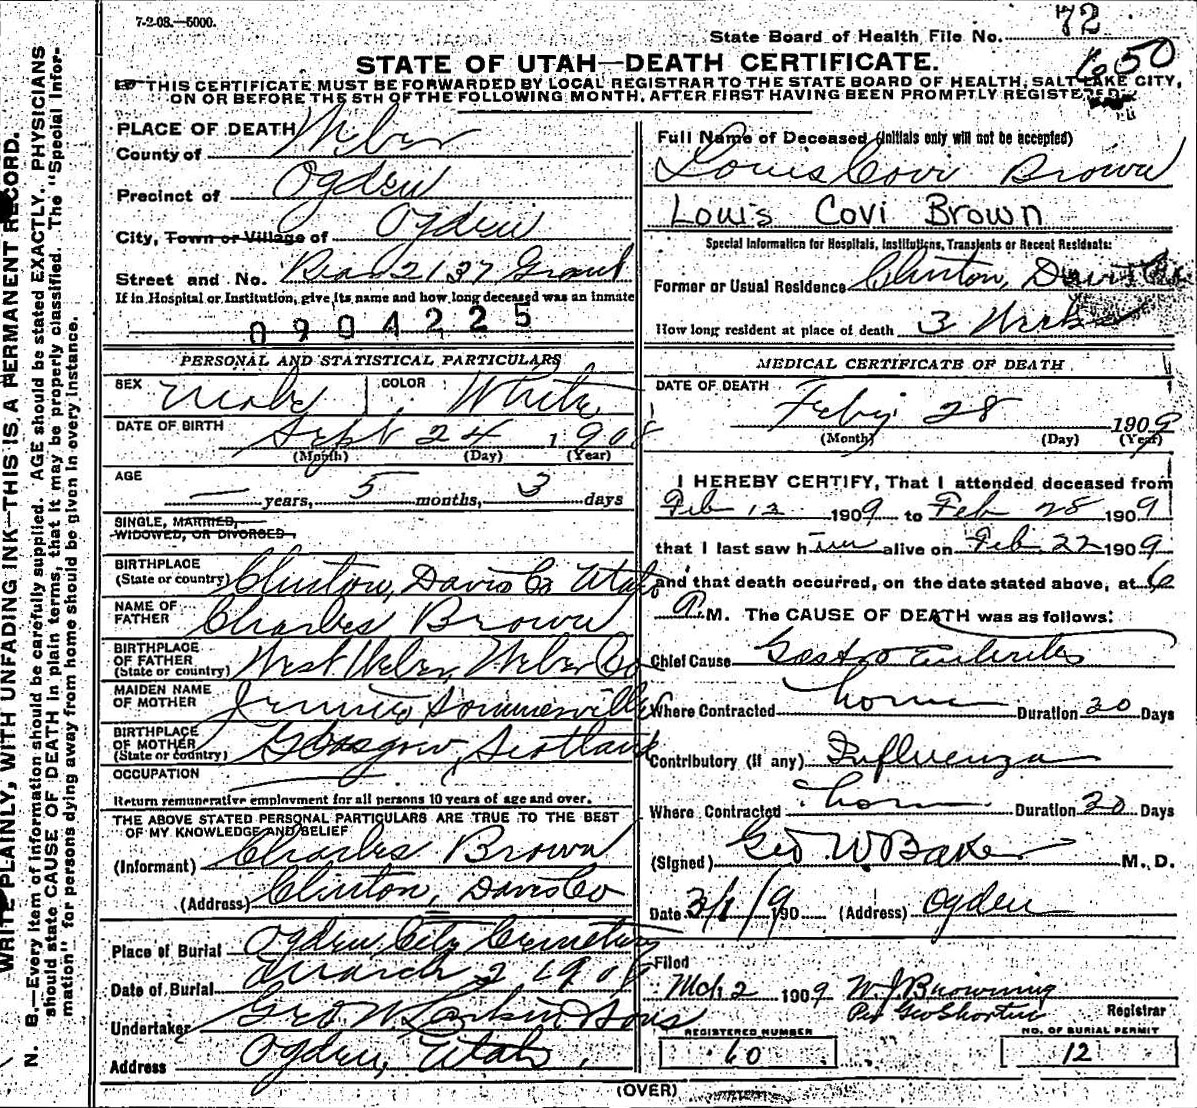 7-2-08.—5000.
State Board of Health File No. 72
650
STATE OF UTAH—DEATH CERTIFICATE.
THIS CERTIFICATE MUST BE FORWARDED BY LOCAL REGISTRAR TO THE STATE BOARD OF HEALTH, SALT LAKE CITY,
ON OR BEFORE THE 5TH OF THE FOLLOWING MONTH, AFTER FIRST HAVING BEEN PROMPTLY REGISTERED.
WRITE PLAINLY, WITH UNFADING INK—THIS IS A PERMANENT RECORD.
N. B.—Every item of information should be carefully supplied. AGE should be stated EXACTLY. PHYSICIANS
should state CAUSE OF DEATH in plain terms, that it may be properly classified. The "Special Infor-
mation" for persons dying away from home should be given in every instance.
PLACE OF DEATH
County of Weber
Precinct of Ogden
City, Town or Village of Ogden
Street and No. Rear 2137 Grant
If in Hospital or Institution, give its name and how long deceased was an inmate
0904225
PERSONAL AND STATISTICAL PARTICULARS
SEX Male COLOR White
DATE OF BIRTH
Sept 24 1908
(Month) (Day) (Year)
AGE
— years, 5 months, 3 days
SINGLE, MARRIED,
WIDOWED, OR DIVORCED
BIRTHPLACE
(State or country) Clinton, Davis Co Utah
NAME OF
FATHER Charles Brown
BIRTHPLACE
OF FATHER
(State or country) West Weber, Weber Co
MAIDEN NAME
OF MOTHER Jennie Sommerville
BIRTHPLACE
OF MOTHER
(State or country) Glasgow, Scotland
OCCUPATION
Return remunerative employment for all persons 10 years of age and over.
THE ABOVE STATED PERSONAL PARTICULARS ARE TRUE TO THE BEST
OF MY KNOWLEDGE AND BELIEF
(Informant) Charles Brown
(Address) Clinton, Davis Co
Place of Burial Ogden City Cemetery
Date of Burial March 2 1909
Undertaker Geo W Larkin & Sons
Address Ogden, Utah
Full Name of Deceased (Initials only will not be accepted)
Louis Covi Brown
Louis Covi Brown
Special Information for Hospitals, Institutions, Transients or Recent Residents:
Former or Usual Residence Clinton, Davis Co
How long resident at place of death 3 Weeks
MEDICAL CERTIFICATE OF DEATH
DATE OF DEATH
Feby 28 1909
(Month) (Day) (Year)
I HEREBY CERTIFY, That I attended deceased from
Feb 12 1909 to Feb 28 1909
that I last saw him alive on Feb. 22 1909
and that death occurred, on the date stated above, at 6
M. The CAUSE OF DEATH was as follows:
Chief Cause Gastro Enteritis
Where Contracted home Duration 20 Days
Contributory (if any) Influenza
Where Contracted home Duration 20 Days
(Signed) Geo W. Baker M. D.
Date 3/1/ 1909 (Address) Ogden
Filed
Mch 2 1909 W. J. Browning
Per Geo Shorten Registrar
REGISTERED NUMBER
60
NO. OF BURIAL PERMIT
12
(OVER)